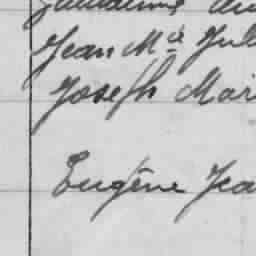 Jean M.ie Jul
Joseph Mar
Eugène Jea